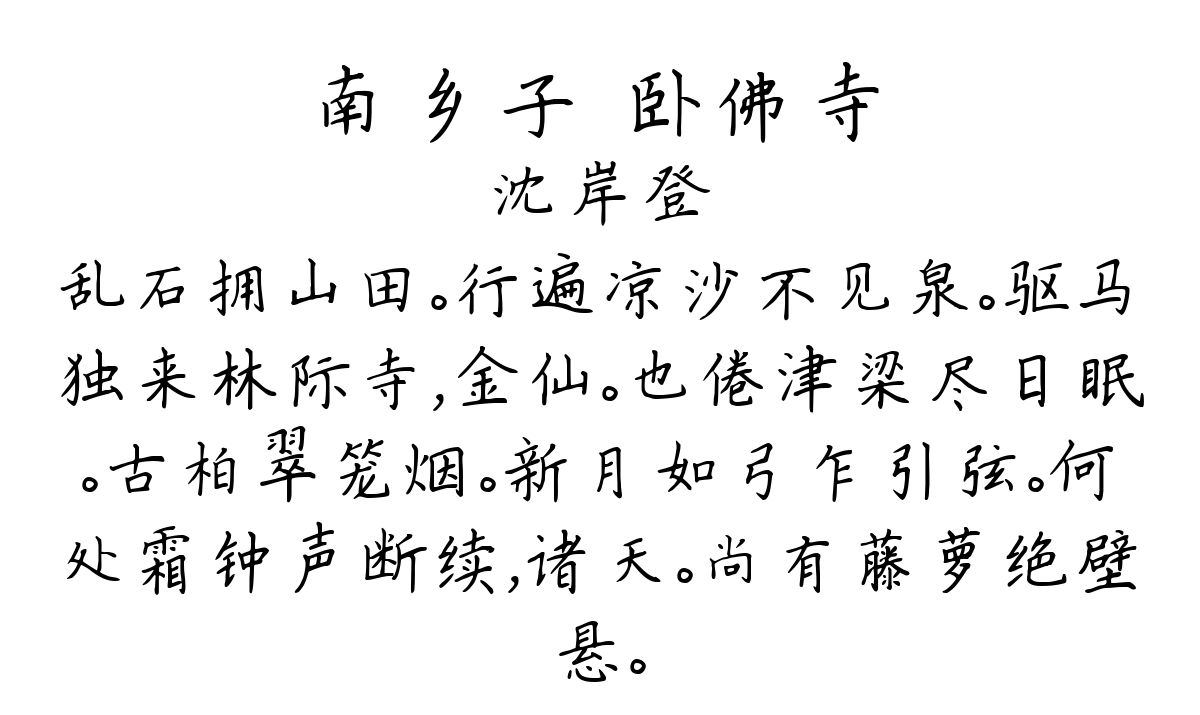 南乡子 卧佛寺
沈岸登
乱石拥山田。行遍凉沙不见泉。驱马
独来林际寺,金仙。也倦津梁尽日眠
。古柏翠笼烟。新月如弓乍引弦。何
处霜钟声断续,诸天。尚有藤萝绝壁
悬。